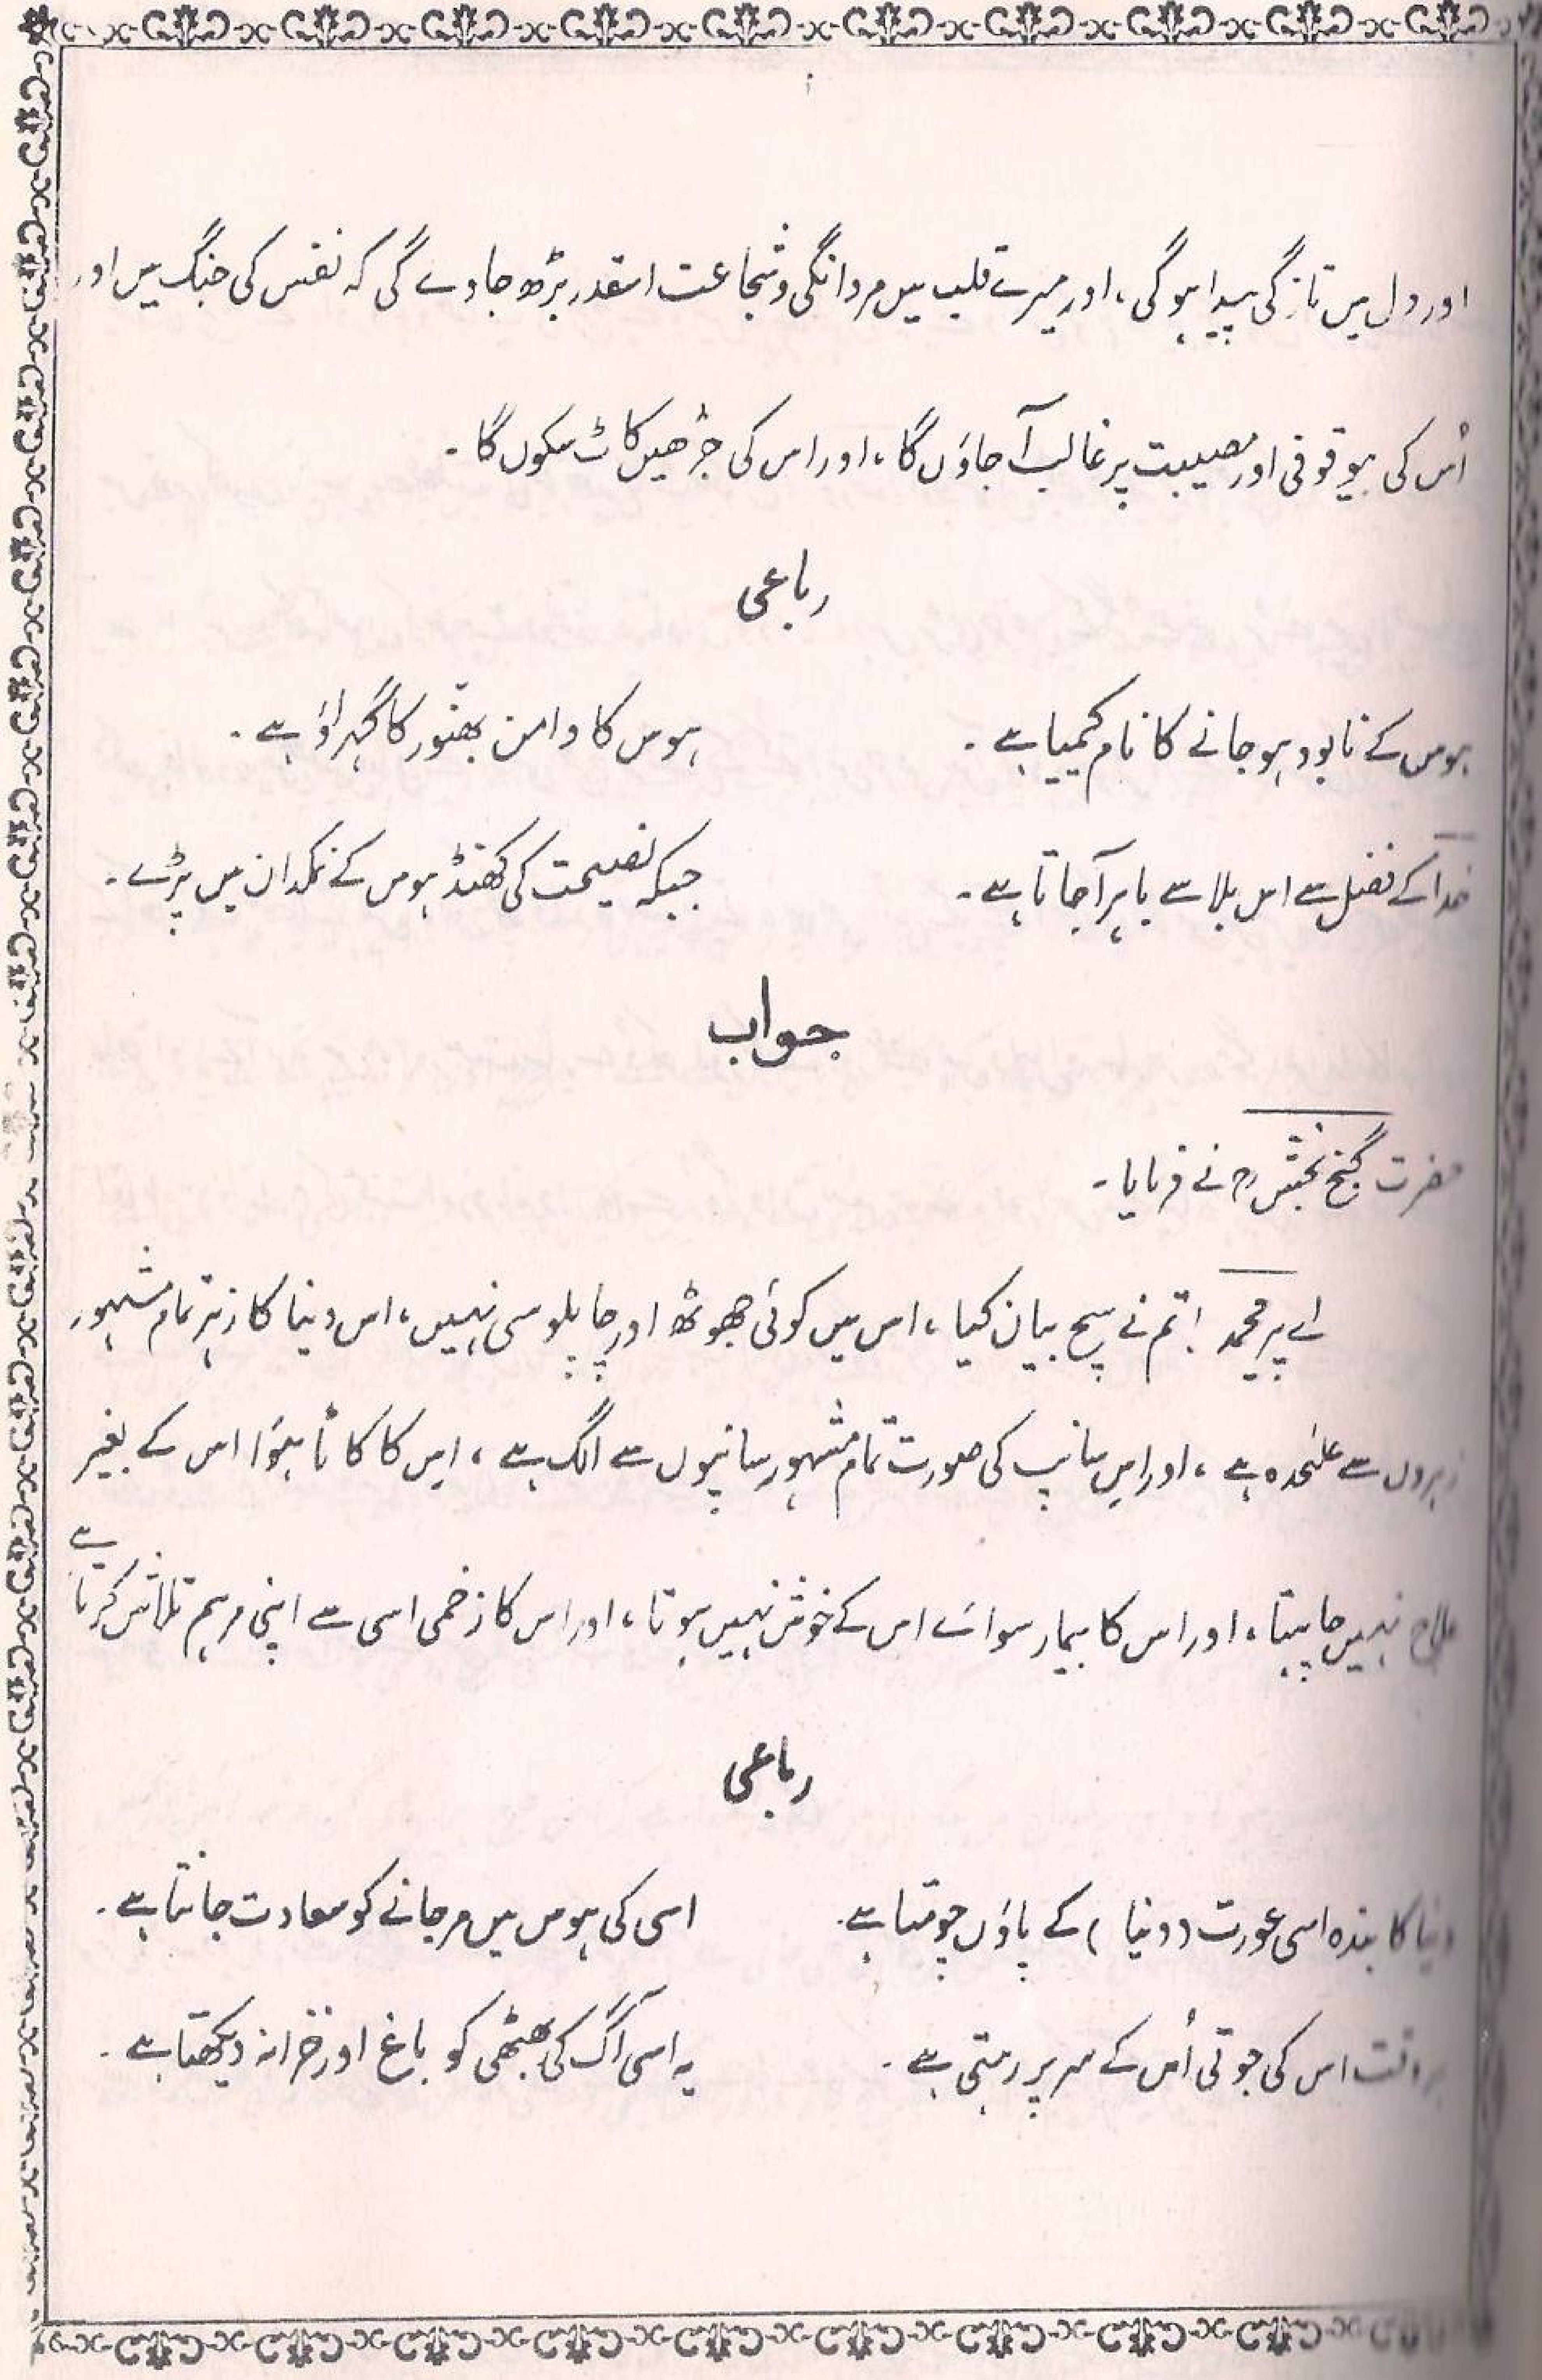 اور دل میں تازگی پیدا ہوگی، اور میرے قلب میں مردانگی و شجاعت اسقدر بڑھ جاوے گی کہ نفس کی جنگ میں اور
اُس کی بیوقوفی اور مصیبت پر غالب آجاؤں گا، اور اس کی جڑھیں کاٹ سکوں گا۔
رباعی
ہوس کے نابود ہو جانے کا نام کیمیا ہے۔ ہوس کا دامن بھنور کا گہراؤ ہے۔
خدا کے فضل سے اس بلا سے باہر آجاتا ہے۔ جبکہ نصیحت کی کھنڈ ہوس کے نمکدان میں پڑے۔
جواب
حضرت گنج بخشؒ نے فرمایا۔
اے پیر محمد! تم نے سچ بیان کیا، اس میں کوئی جھوٹھ اور چاپلوسی نہیں، اس دنیا کا زہر تمام مشہور
زہروں سے علٰحدہ ہے، اور اس سانپ کی صورت تمام مشہور سانپوں سے الگ ہے، اس کا کاٹا ہوٗا اس کے بغیر
علاج نہیں چاہتا، اور اس کا بیمار سوائے اس کے خوش نہیں ہوتا، اور اس کا زخمی اسی سے اپنی مرہم تلاش کرتا ہے
رباعی
دنیا کا بندہ اسی عورت (دنیا) کے پاؤں چومتا ہے۔ اسی کی ہوس میں مرجانے کو سعادت جانتا ہے۔
ہر وقت اس کی جوتی اُس کے سر پر رہتی ہے۔ یہ اسی آگ کی بھٹھی کو باغ اور خزانہ دیکھتا ہے۔